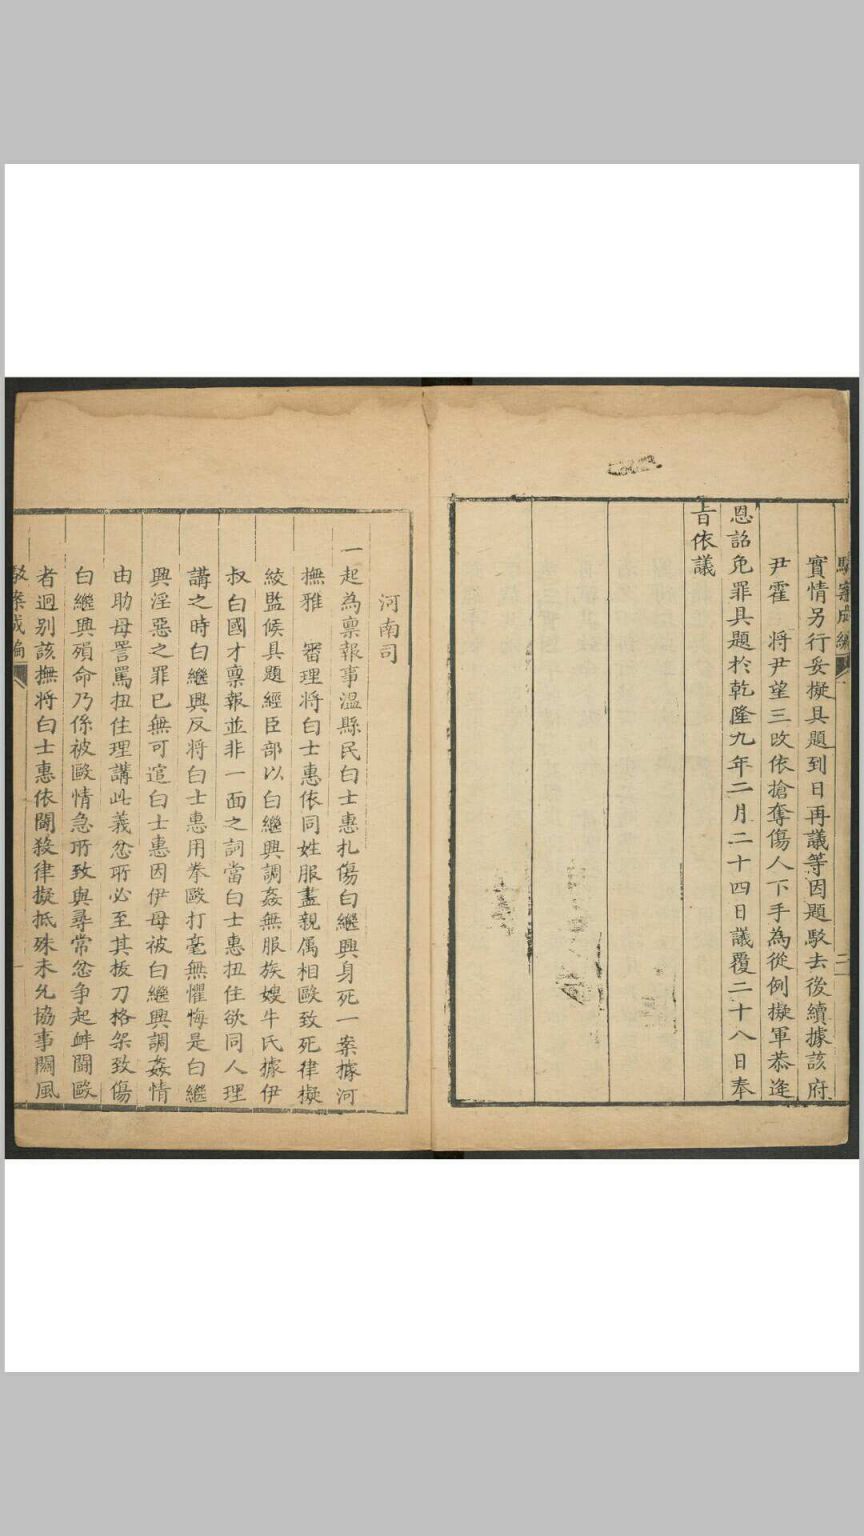 駁案成編
二
實情另行妥擬具題到日再議等因題駁去後續據該府
尹霍　將尹望三改依搶奪傷人下手為從例擬軍恭逢
恩詔免罪具題於乾隆九年二月二十四日議覆二十八日奉
旨依議
河南司
一起為稟報事溫縣民白士惠扎傷白繼興身死一案據河
撫雅　審理將白士惠依同姓服盡親属相毆致死律擬
絞監候具題經臣部以白繼興調姦無服族嫂牛氏據伊
叔白國才稟報並非一面之詞當白士惠扭住欲同人理
講之時白繼興反將白士惠用拳毆打毫無懼悔是白繼
興淫惡之罪已無可逭白士惠因伊母被白繼興調姦情
由助母詈罵扭住理講此義忿所必至其拔刀格架致傷
白繼興殞命乃係被毆情急所致與尋常忿争起衅鬬毆
者迥别該撫將白士惠依鬬殺律擬抵殊未允協事關風
駁案成編
一